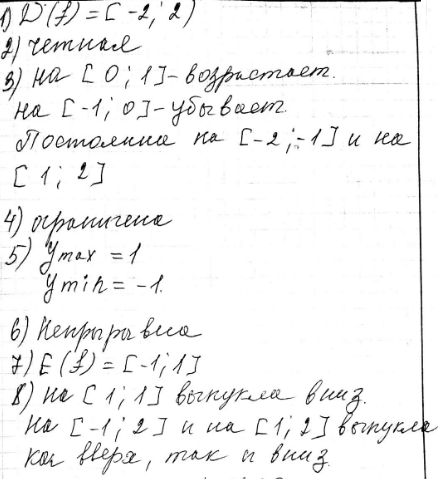 1) D(f) = [-2; 2)
2) четная
3) на [0; 1] - возрастает.
на [-1; 0] - убывает.
Постоянна на [-2; -1] и на
[1; 2]
4) ограничена
5) y max = 1
y min = -1.
6) Непрырывна
7) E(f) = [-1; 1]
8) на [1; 1] выпукла вниз.
на [-1; 2] и на [1; 2] выпукла
как вверх, так и вниз.